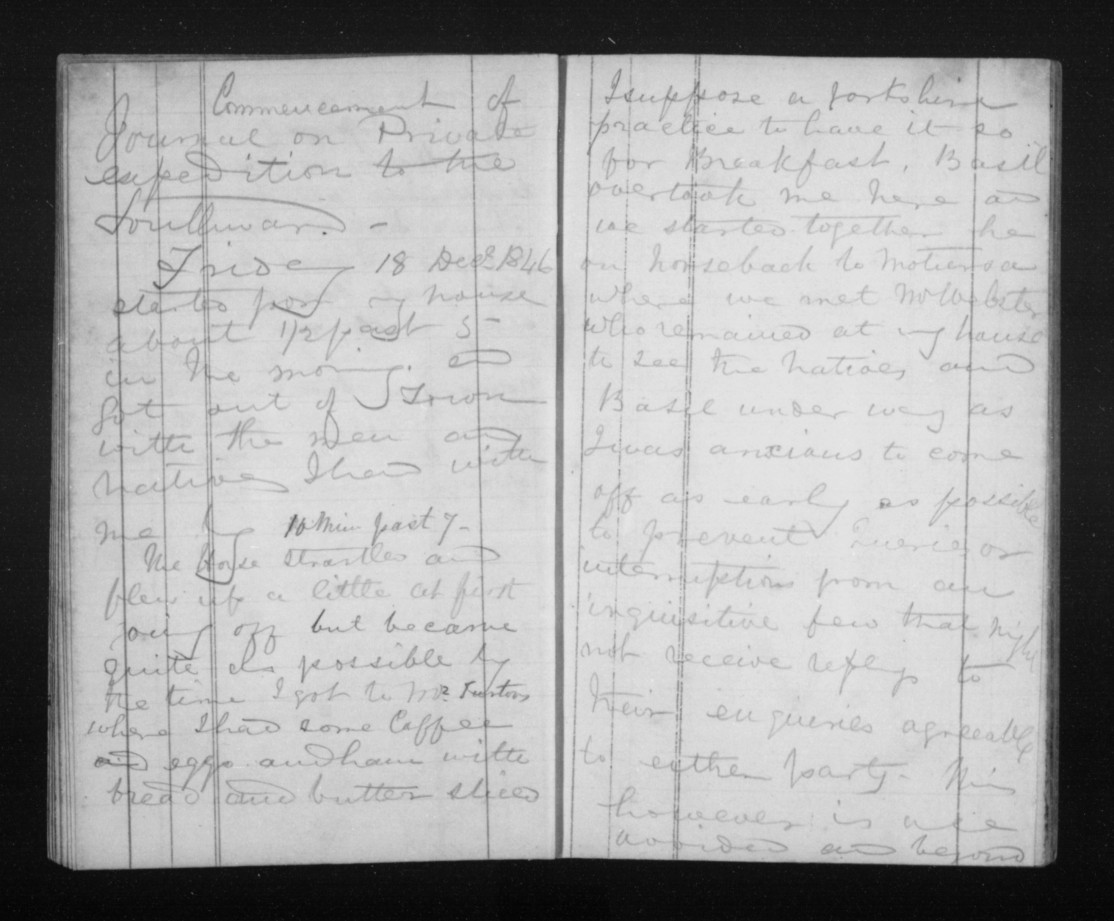 Commencement of
Journal on Private
expedition to the
Southward. -
Friday 18 Decr 1846
started from my house
about 1/2 past 5
in the morning and
got out of Town
with the men and
natives I had with
me by 10 Min past 7-
The Horse startled and
flew up a little at first
going off but became
quite as possible by
the time I got to Mr.
where I had some Coffee
and eggs and ham with
bread and butter sliced
I suppose a Yorkshire
practice to have it so
for Breakfast. Basil
overtook me here and
we started together he
on horseback to
where we met Mr Webster
who remained at my house
to see the natives and
Basil under way as
I was anxious to come
off as early as possible
to prevent Queries or
interruptions from an
inquisitive few that might
not receive reply to
their enquiries agreeable
to either party. This
however is
avoided and beyond